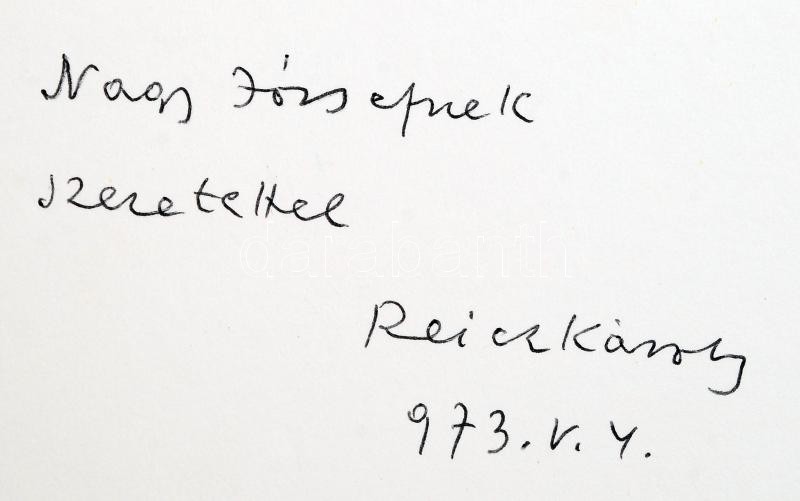 Nagy Józsefnek
szeretettel
darabanth
Reich Károly
973. V. 4.